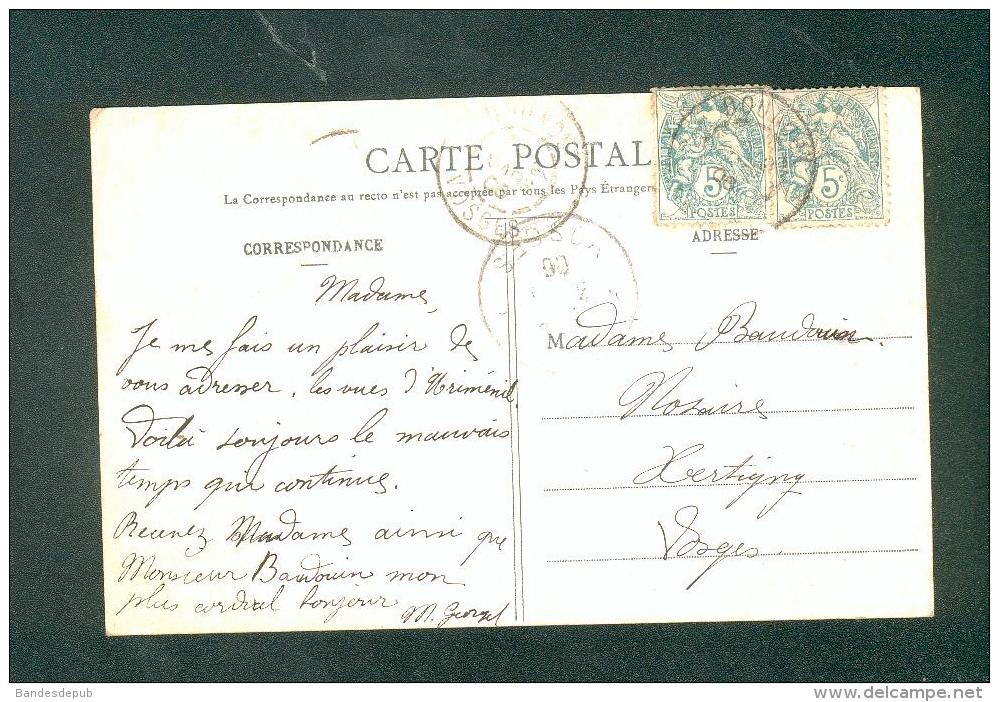 CARTE POSTAL
La Correspondance au recto n'est pas acceptée par tous les Pays Étrangers
CORRESPONDANCE
ADRESSE
Madame,
Je me fais un plaisir de
vous adresser, les vues d'Uriménil.
Voilà toujours le mauvais
temps qui continue.
Recevez Madame ainsi que
Monsieur Baudouin mon
plus cordial bonjour
M.
Madame Baudouin.
Notaire
Xertigny
Vosges.
5c
POSTES
5c
POSTES
VOSGES
Bandesdepub
www.delcampe.net